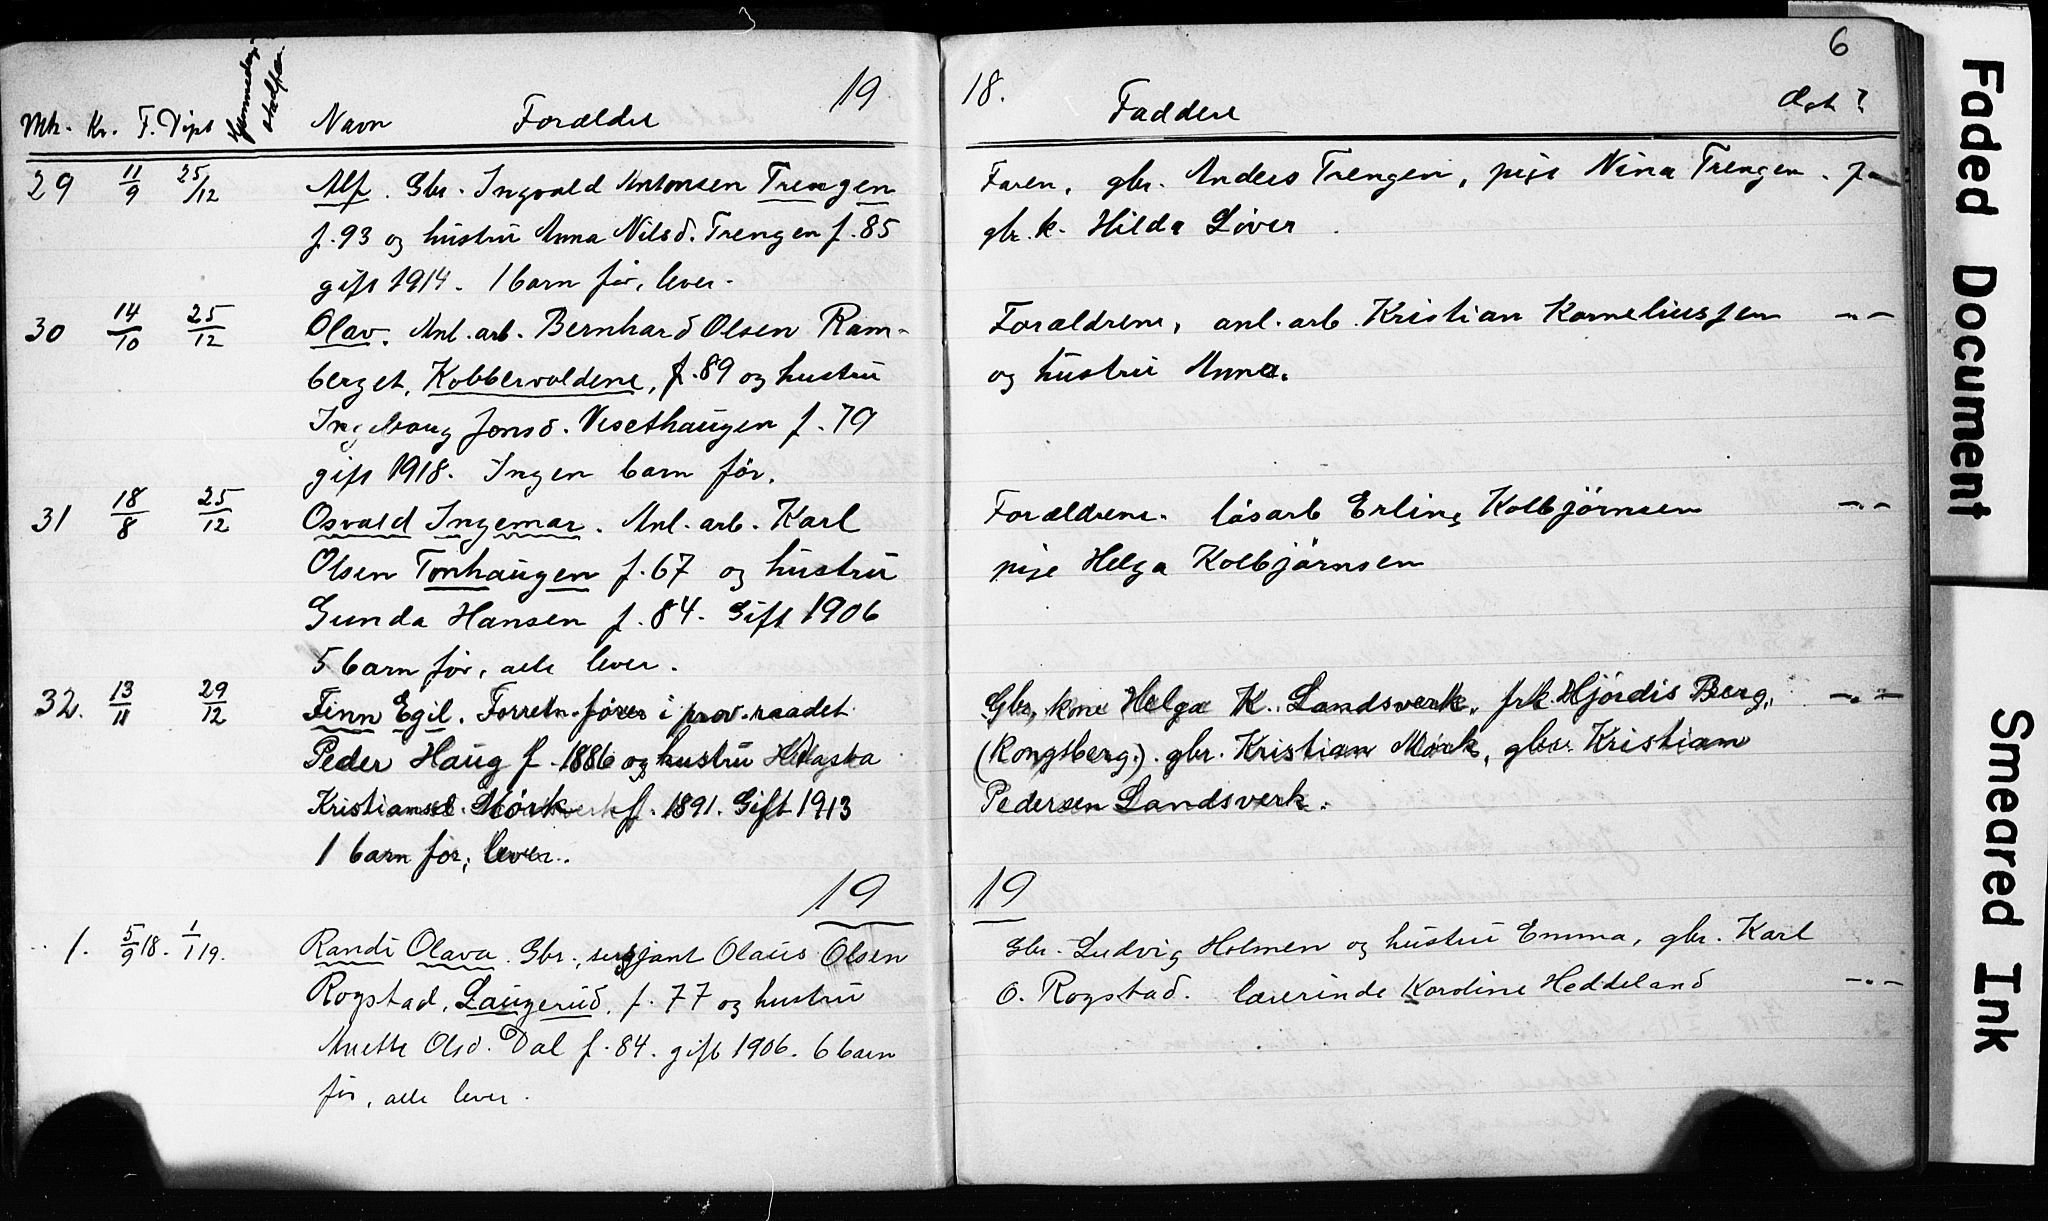 6
19
18.
Mk. Kv. F. Døpt Hjemmedøp stadf. Navn Forældre
Faddere Ægt?
29 11/9 25/12 Alf. Gbr. Ingvald Antonsen Trengen
f. 93 og hustru Anna Nilsd. Trengen f. 85
gift 1914. 1 barn før, lever.
Faren, gbr. Anders Trengen, pige Nina Trengen.
gbr. k. Hilda Löver
30 14/10 25/12 Olav. Anl. arb. Bernhard Olsen Ram-
berget, Kobbervoldene, f. 89 og hustru
Ingebourg Jonsd. Visethaugen f. 79
gift 1918. Ingen barn før.
Forældrene, anl. arb. Kristian Korneliussen -"-
og hustru Anna.
31 18/8 25/12 Osvald Ingemar. Anl. arb. Karl
Olsen Tonhaugen f. 67 og hustru
Gunda Hansen f. 84. Gift 1906
5 barn før, alle lever.
Forældrene. løsarb Erling Kolbjørnsen -"-
pige Helga Kolbjørnsen
32. 13/11 29/12 Finn Egil. Forretn. fører i prov. raadet
Peder Haug f. 1886 og hustru
Kristiansd. Mörk f. 1891. Gift 1913
1 barn før, lever.
Gbr. kone Helga K. Landsverk, frk. Hjördis Berg, -"-
(Kongsberg). gbr. Kristian Mörk, gbr. Kristian
Pedersen Landsverk.
19
19
1. 5/9 18. 1/1 19. Randi Olava. Gbr., sersjant Olaus Olsen
Rogstad, Laugerud, f. 77 og hustru
Anette Olsd. Dal f. 84. gift 1906. 6 barn
før, alle lever.
Gbr. Ludvig Holmen og hustru Emma, gbr. Karl
O. Rogstad. lærerinde Karoline Heddeland -"-
Faded Document
Smeared Ink